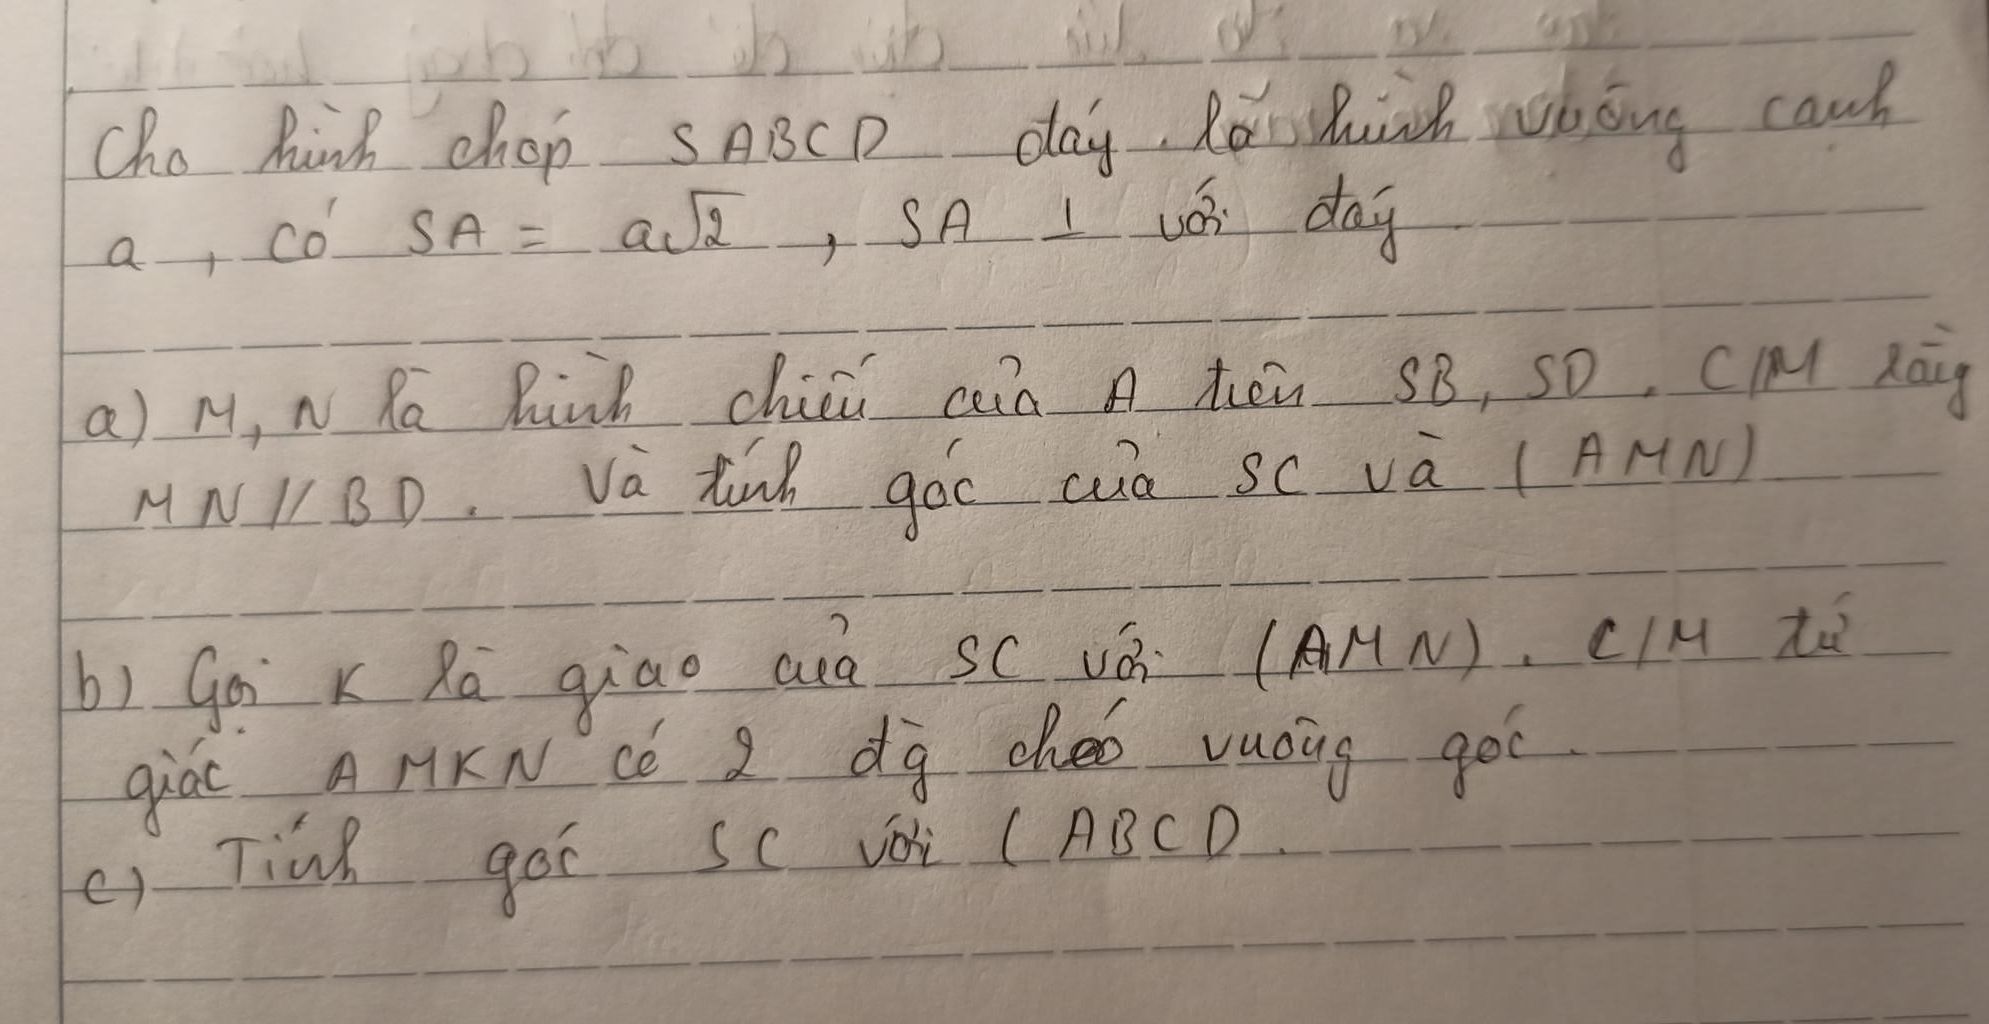 Cho hình chóp SABCD đáy là hình vuông cạnh
a, có SA = a√2, SA ⊥ với đáy
a) M, N là hình chiếu của A trên SB, SD. C/M rằng
MN // BD. Và tính góc của SC và (AMN)
b) Gọi K là giao của SC với (AMN). C/M tứ
giác AMKN có 2 đg chéo vuông góc.
c) Tính góc SC với (ABCD.